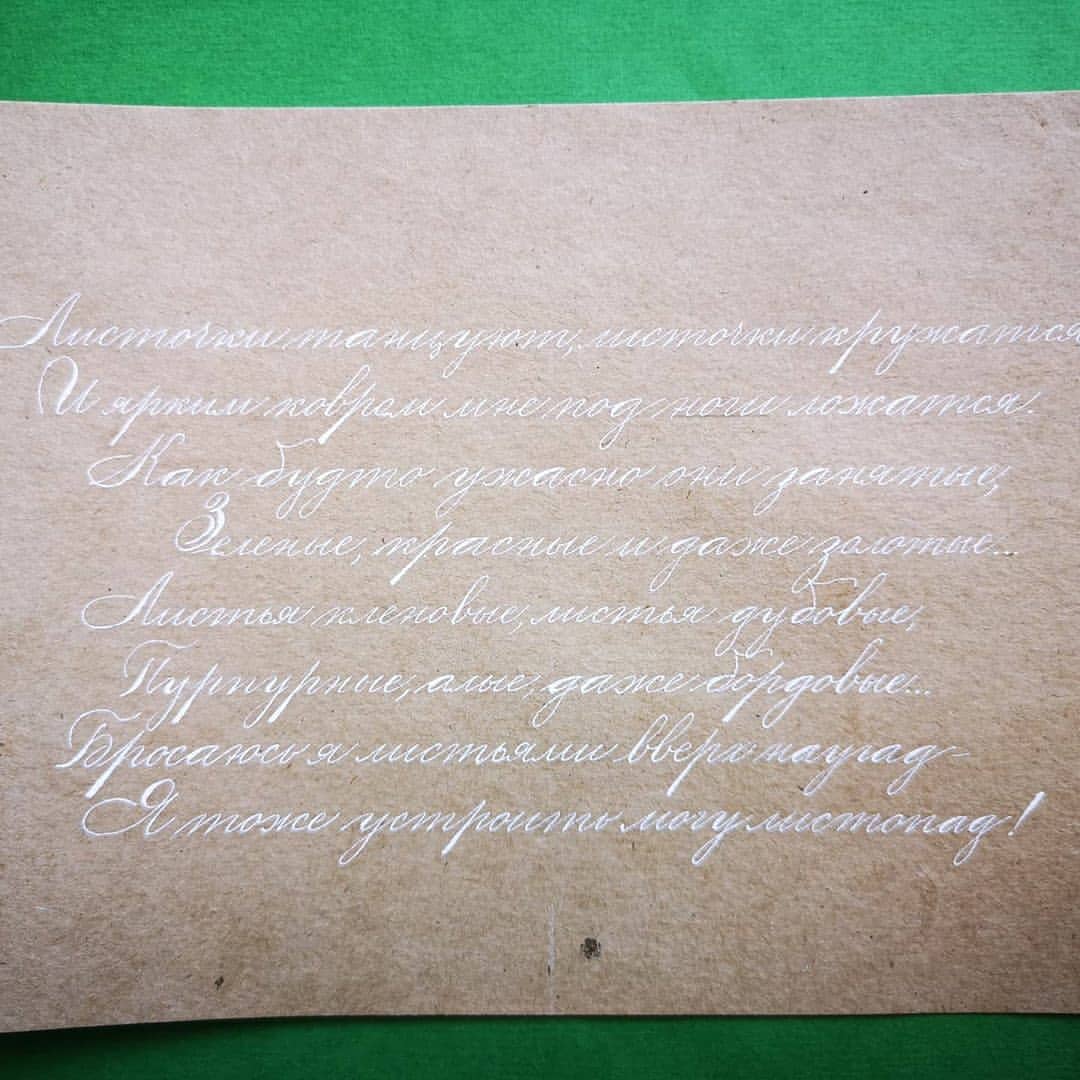 Листочки танцуют, листочки кружатся
И ярким ковром мне под ноги ложатся.
Как будто ужасно они занятые,
Зеленые, красные и даже золотые...
Листья кленовые, листья дубовые,
Пурпурные, алые, даже бордовые...
Бросаюсь я листьями вверх наугад-
Я тоже устроить могу листопад!